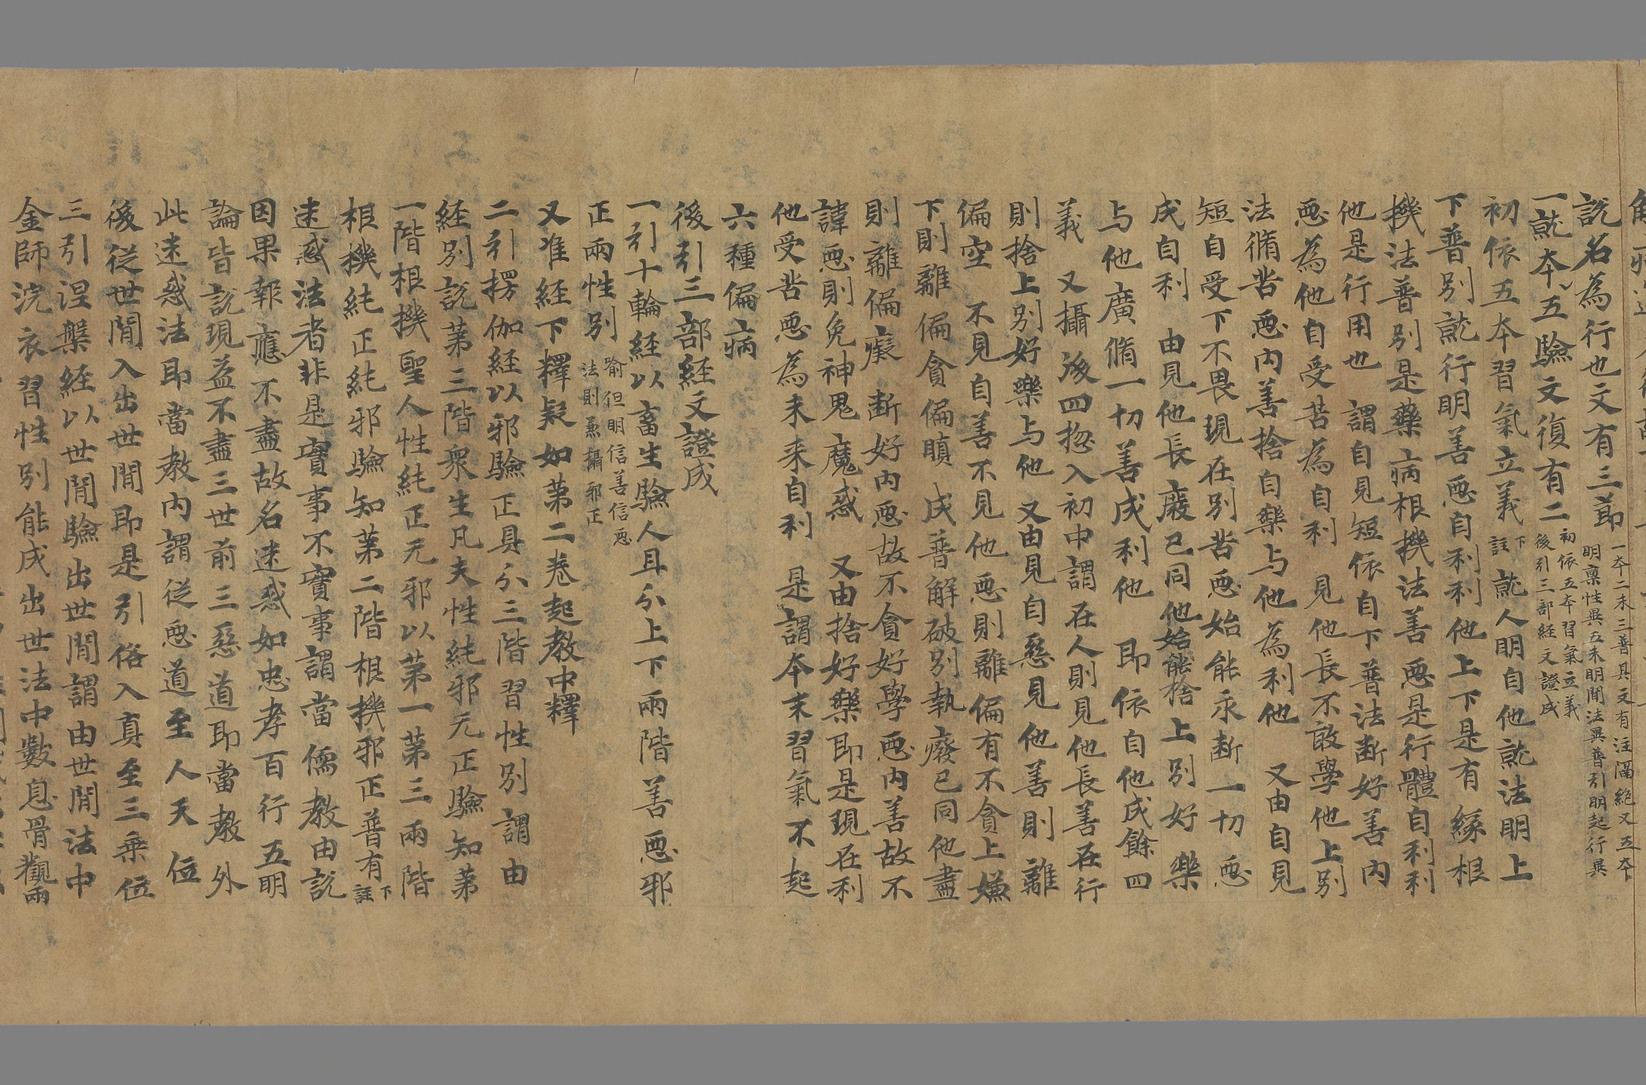 說名為行也文有三節 一本二末三普具文有注滿絕又五本
明稟性異五末明聞法異普引明起行異
一就本五驗文復有二 初依五本習氣立義
後引三部經文證成
初依五本習氣立義 下註 就人明自他就法明上
下普別就行明善惡自利利他上下是有緣根
機法普別是藥病根機法善惡是行體自利利
他是行用也 謂自見短依自下普法斷好善內
惡為他自受苦為自利 見他長不敢學他上別
法脩苦惡內善捨自樂与他為利他 又由自見
短自受下不畏現在別苦惡始能永斷一切惡
成自利 由見他長廢已同他始能捨上別好樂
与他廣脩一切善成利他 即依自他成餘四
義 又攝後四惣入初中謂在人則見他長善在行
則捨上別好樂与他 又由見自惡見他善則離
偏空 不見自善不見他惡則離偏有不貪上嫌
下則離偏貪偏瞋 成普解破別執廢已同他盡
則離偏癡 斷好內惡故不貪好學惡內善故不
諱惡則免神鬼魔惑 又由捨好樂即是現在利
他受苦惡為未來自利 是謂本末習氣不起
六種偏病
後引三部經文證成
一引十輪經以畜生驗人且分上下兩階善惡邪
正兩性別 喻但明信善信惡
法則兼攝邪正
又准經下釋疑如第二卷起教中釋
二引楞伽經以邪驗正具分三階習性別謂由
經別說第三階眾生凡夫性純邪无正驗知第
一階根機聖人性純正无邪以第一第三兩階
根機純正純邪驗知第二階根機邪正普有 下註
迷惑法者非是實事不實事謂當儒教由說
因果報應不盡故名迷惑如忠孝百行五明
論皆說現益不盡三世前三惡道即當教外
此迷惑法即當教內謂從惡道至人天位
後從世間入出世間即是引俗入真至三乘位
三引涅槃經以世間驗出世間謂由世間法中
金師浣衣習性別能成出世法中數息骨觀兩